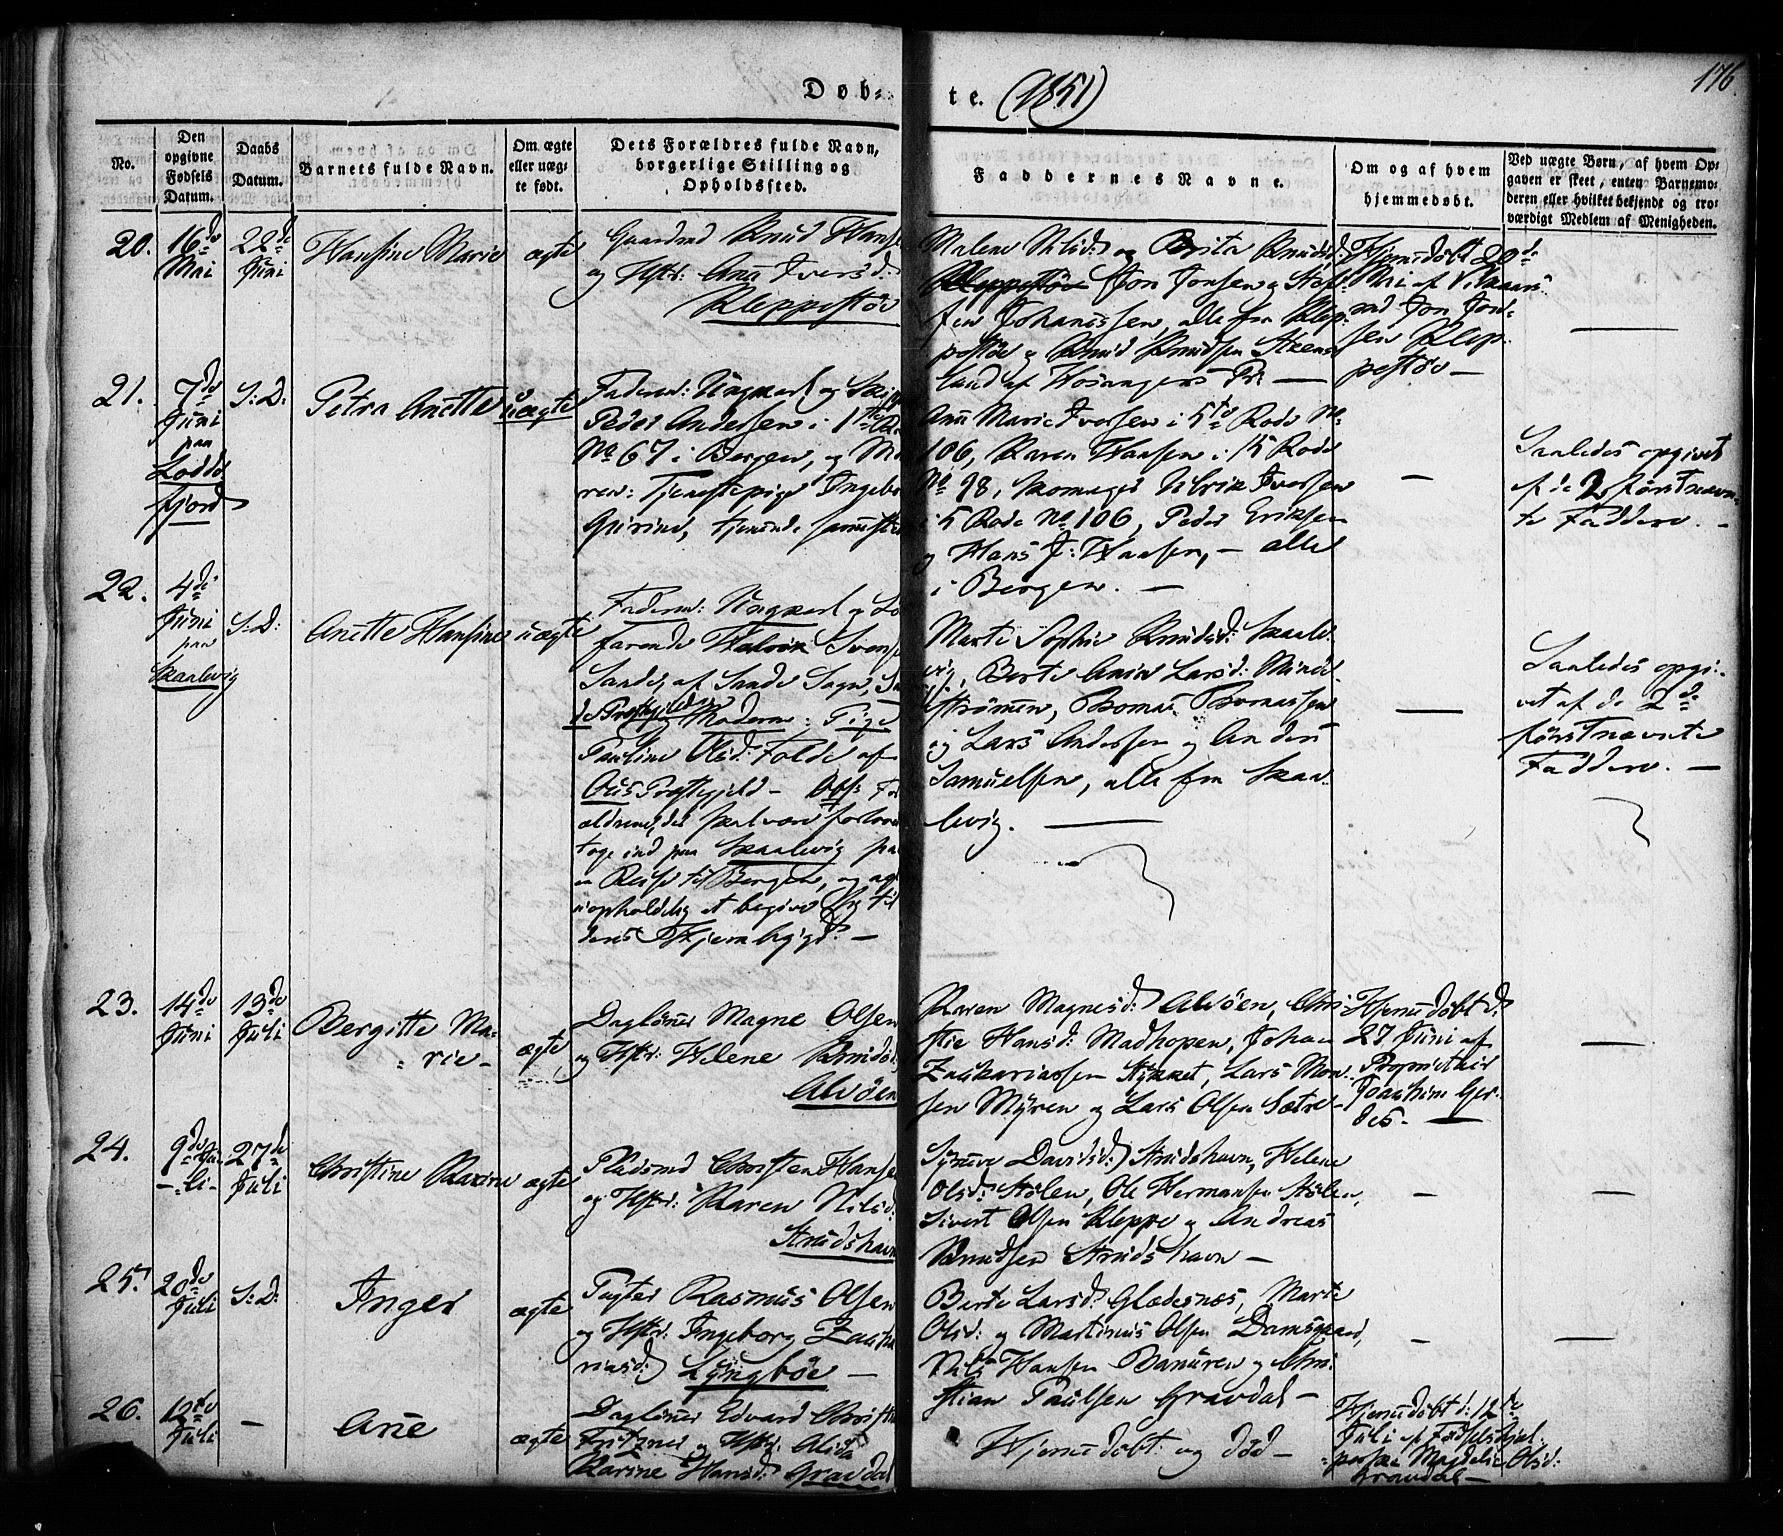 176.
Døb-
te. (1851)
No.
Den opgivne Fødsels Datum.
Daabs Datum.
Barnets fulde Navn.
Om ægte eller uæg-te født.
Dets Forældres fulde Navn, borgerlige Stilling og Opholdssted.
Faddernes Navne.
Om og af hvem hjemmedøbt.
Ved uægte Børn, af hvem Op-
gaven er skeet, enten Barnemo-
deren eller hvilket bekjendt og tro-
værdigt Medlem af Menigheden.
20.
16de Mai
22de Juni
Hansine Marie
ægte
Gaardmd Knud Hanse
og Hstr: Anna Iversd:
Kleppestøe
Malene Nilsd: og Brita Knudsd:
Kleppestøe Jon Jonsen og Stef-
fen Johannessen, alle fra Klep-
pestøe og Knud Knudsen
land af Hosanger Pr: —
Hjemdøbt 20de
Mai af
md Jon Jon-
sen Klep-
pestøe —
—
21.
7de Juni
paa
Lodde-
fjord
S: D:
Petra Anette
uægte
Faderen: Ungkarl og
Peder Andersen i 1ste
No 67 i Bergen, og Mo
ren: Tjenestepige Ingebo
Guriine, tjenende sammeste
Ann Marie Iversen i 5te Rode No
106, Karen Hansen i 15 Rode
No 98, Skomager Ulrik Iversen
i 5 Rode No 106, Peder Eriksen
og Hans J: Hansen, — alle
i Bergen. —
—
Saaledes opgivet
af de 2 førstnævn-
te Faddere. —
22.
4de Juni
paa
Skaalevig
S: D:
Anette Hansine
uægte
Faderen: Ungkarl og Lo
farende Halvor Svens
Sande, af Sande Sogn,
de Præstegjeld og Moderen: Pige
Pauline Olsd: Folde af
Ous Præstegjeld — Obs: For
ældrene, der skal være forlove
toge ind paa Skaalevig paa
en Reise til Bergen, og ag
uopholdelig at begive sig til
deres Hjembygd. —
Marte Sophie Knudsd: Skaale-
vig, Berte Anna Larsd:
strømen, Thomas Thomassen
og Lars Andersen og Anders
Samuelsen, alle fra Skaa-
levig. —
—
Saaledes opgi-
vet af de 2de
førstnævnte
Faddere. —
23.
14de Juni
13de Juli
Bergitte Ma-
rie —
ægte
Daglønner Magne Olsen
og Hstr: Helene Knudsd:
Alvøen
Karen Magnesd: Alvøen, Chri-
stie Hansd: Madhopen, Johan
Zachariassen Stykket, Lars Mon-
sen Myren og Lars Olsen Sætre —
Hjemdøbt d:
27 Juni af
Proprietair
Joachim Ger-
des. —
—
24.
9de Ju-
li —
27de Juli
Christine Karine
ægte
Pladsmd Christen Hanse
og Hstr: Karen Nilsd:
Strudshavn
Synneve Davidsd: Strudshavn, Helene
Olsd: Stølen, Ole Hermansen Stølen,
Sivert Olsen Kleppe og Andreas
Knudsen Strudshavn —
—
—
25.
20de Juli
S: D:
Inger
ægte
Pagter Rasmus Olsen
og Hstr: Ingeborg Zacha
riasd: Lyngbøe —
Berte Larsd: Gladesnæs, Marte
Olsd: og Martinus Olsen Damsgaard,
Nils Hansen og Chri-
stian Paulsen Gravdal —
—
—
26.
12te Juli
—
Ane
ægte
Daglønner Edvard Christia
Fritzner og Hstr: Alida
Karine Hansd: Gravdal
Hjemdøbt og død —
Hjemdøbt d: 12te
Juli af Fødselshjel-
persken Magdeli Olsd:
Gravdal —